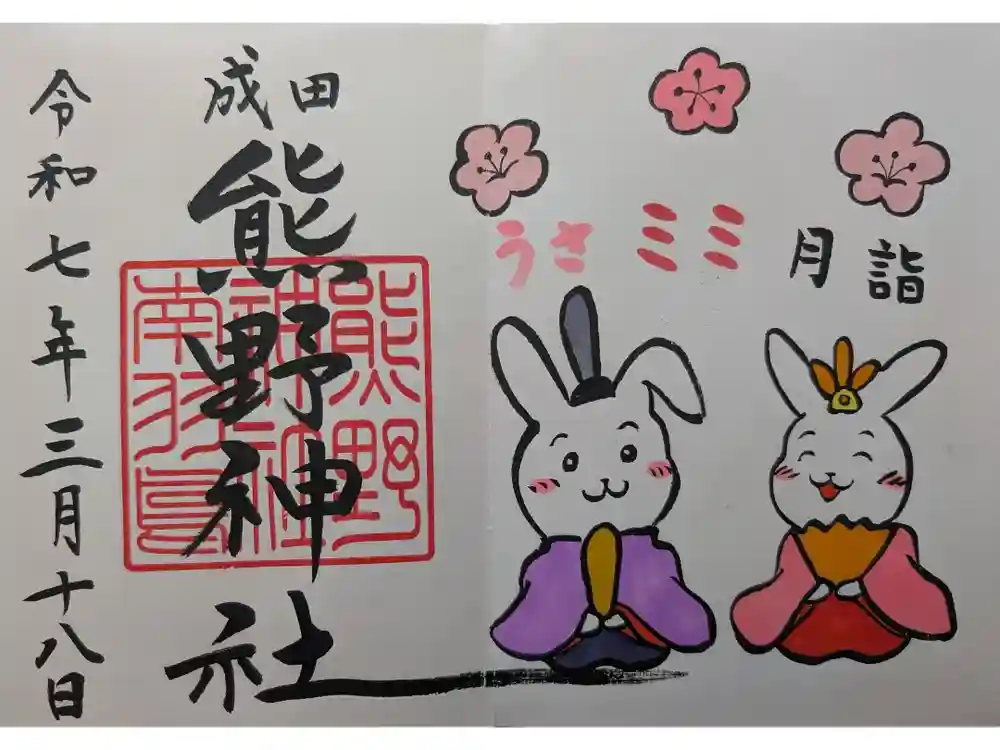 うさミミ月詣
成田
熊野神社
熊野
神社
南羽鳥
令和七年三月十八日